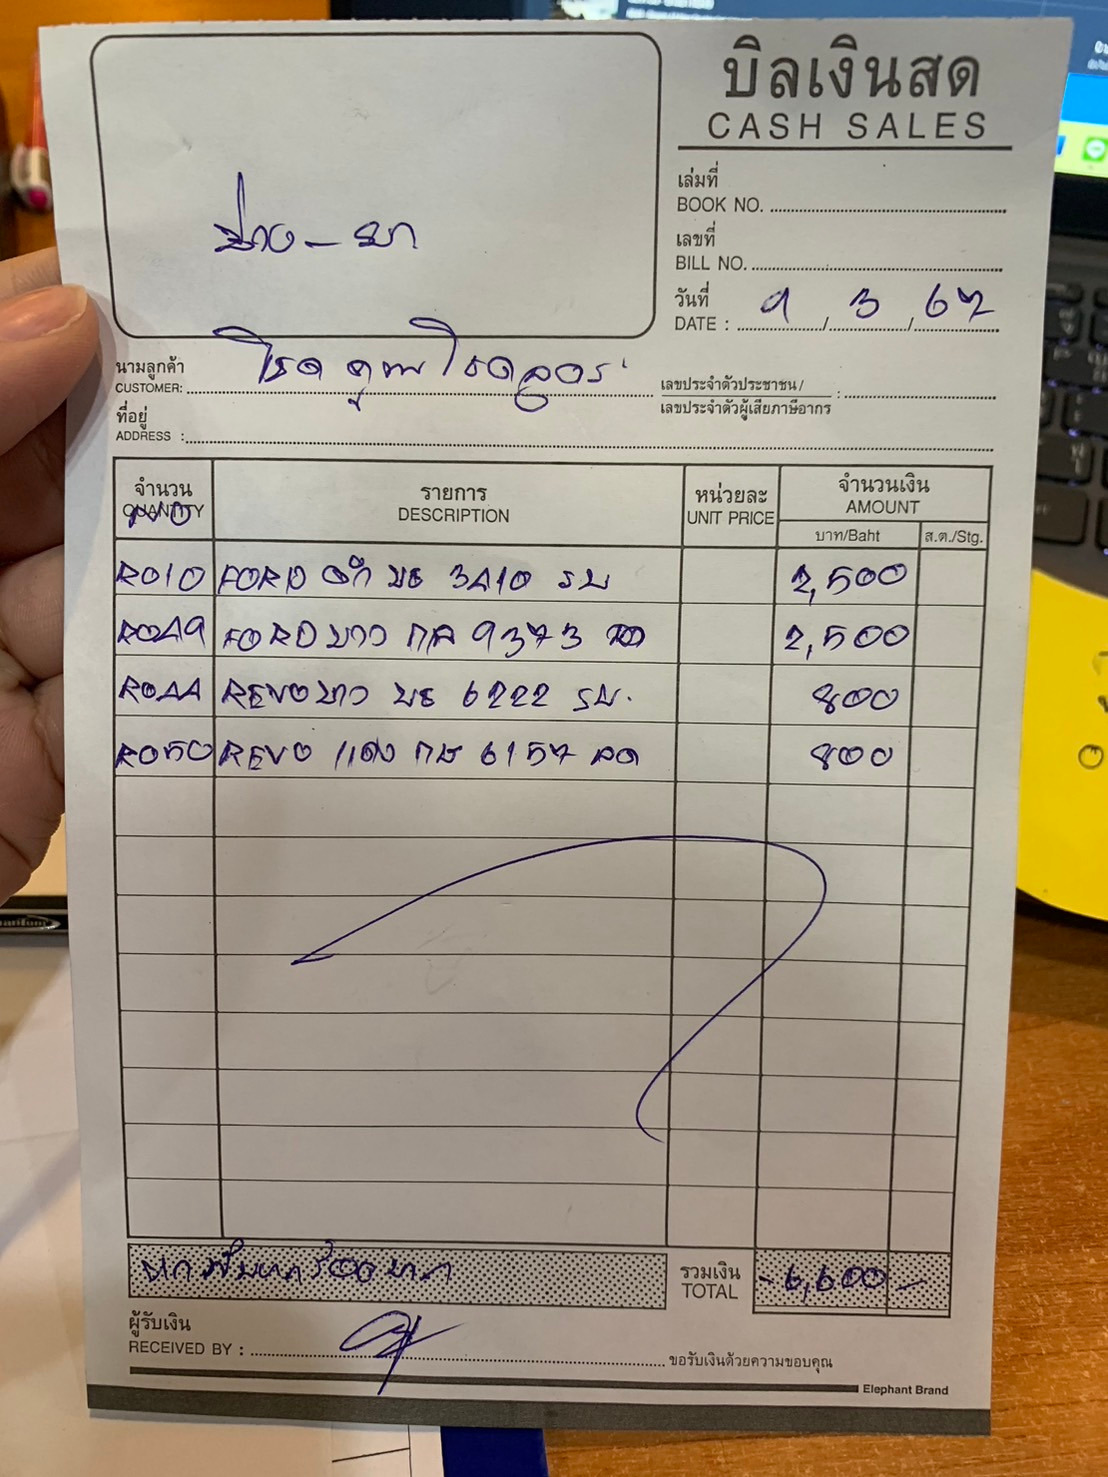 บิลเงินสด
CASH SALES
เล่มที่
BOOK NO.
เลขที่
BILL NO.
วันที่
DATE : 9 / 3 / 67
ช่าง - ยา
นามลูกค้า
CUSTOMER: โชค คูณ โชค
เลขประจำตัวประชาชน /
เลขประจำตัวผู้เสียภาษีอากร :
ที่อยู่
ADDRESS :
จำนวน รายการ หน่วยละ จำนวนเงิน
QUANTITY DESCRIPTION UNIT PRICE AMOUNT
NO บาท/Baht ส.ต./Stg.
R010 FORD ดำ บธ 3410 รบ 2,500
R049 FORD ขาว 9373 2,500
R044 REVO ขาว บธ 6222 รบ. 800
R050 REVO แดง 6157 800
รวมเงิน
TOTAL - 6,600 -
ผู้รับเงิน
RECEIVED BY :
ขอรับเงินด้วยความขอบคุณ
Elephant Brand